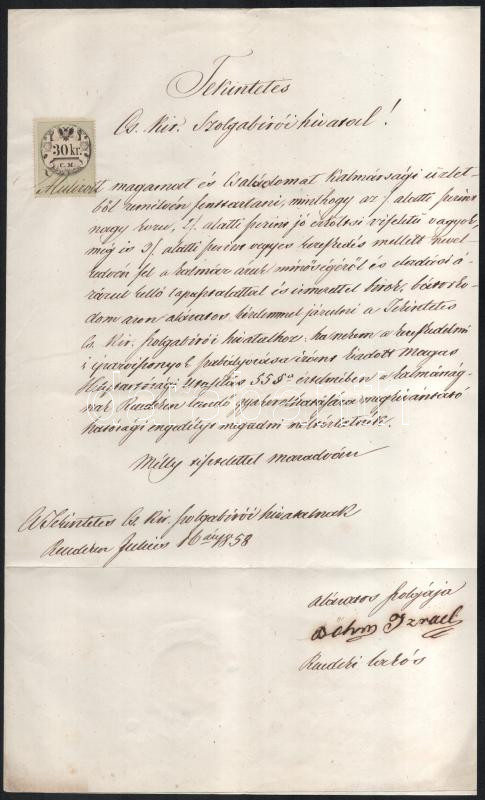 Tekintetes
Cs. Kir. Szolgabirói hivatal!
30 kr.
C. M.
Alulirott magamat és Családomat Kalmársági üzlet-
ből remélvén fentartani, minthogy az 1/. alatti szerint
nagy koru, 2/. alatti szerint jó erkölcsi viseletü vagyok,
még is 3/. alatti szerint vegyes kereskedés mellett nevel-
kedvén fel a kalmár áruk minőségéről és eladási á-
ráról kellő tapasztalattal és ismerettel birok, bátorko-
dom azon alázatos kérelemmel járulni a Tekintetes
Cs. Kir. szolgabirói hivatalhoz: ha nekem a kereskedelmi
s iparviszonyok szabályozása iránt kiadott Magas
Helytartósági Utasitás 55 § értelmében a kalmárság-
nak leendő gyakorolhatására megkivántató
hatósági engedélyt megadni méltóztatnék.
Mélly tisztelettel maradván
A Tekintetes Cs. Kir. szolgabirói hivatalnak
Julius 16 án 1858
alázatos szolgája
Böhm Izrael
lakós